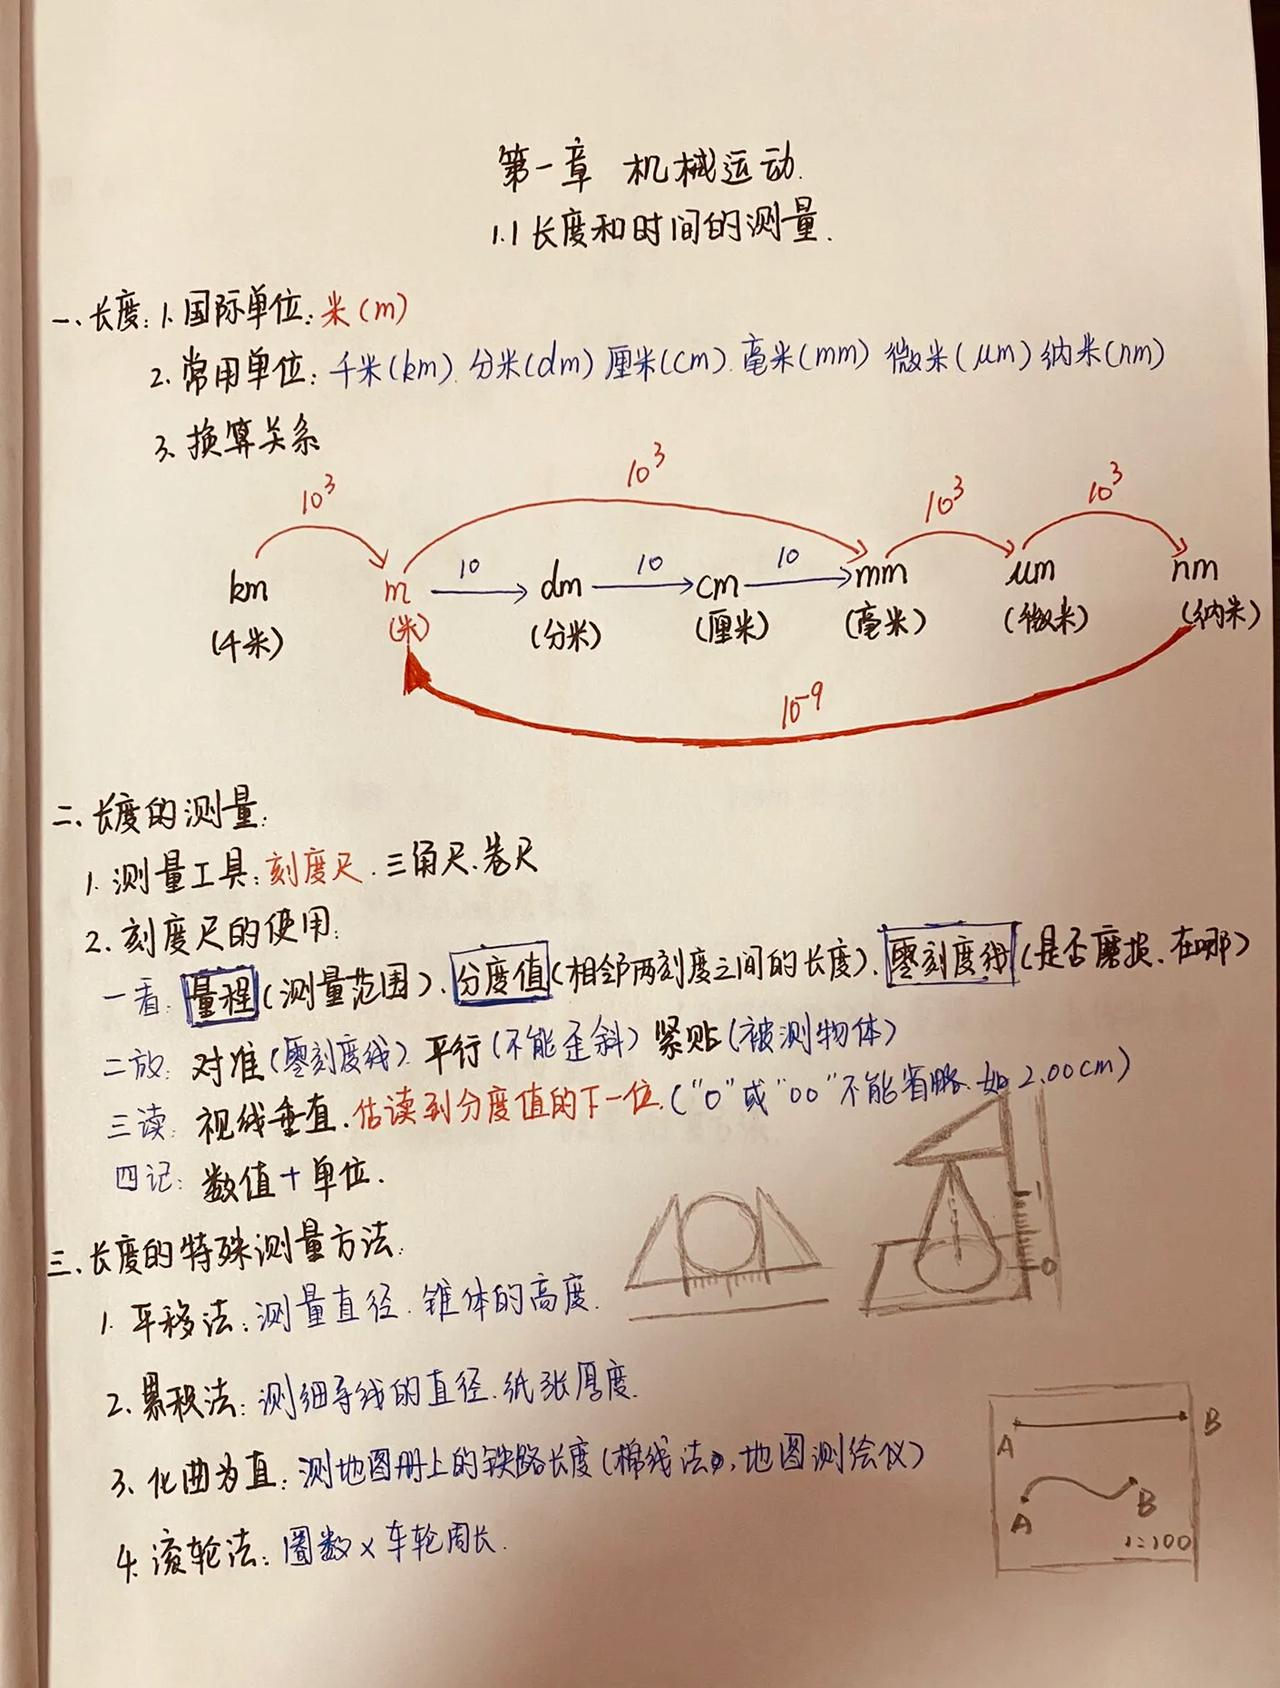 第一章 机械运动.
1.1 长度和时间的测量.
一、长度: 1. 国际单位: 米(m)
2. 常用单位: 千米(km). 分米(dm) 厘米(cm). 毫米(mm) 微米(μm) 纳米(nm)
3. 换算关系
10³ 10³ 10³ 10³
km m 10 dm 10 cm 10 mm μm nm
(千米) (米) (分米) (厘米) (毫米) (微米) (纳米)
10⁻⁹
二、长度的测量:
1. 测量工具: 刻度尺. 三角尺. 卷尺
2. 刻度尺的使用:
一看: 量程(测量范围)、分度值(相邻两刻度之间的长度)、零刻度线(是否磨损、在哪)
二放: 对准(零刻度线) 平行(不能歪斜) 紧贴(被测物体)
三读: 视线垂直. 估读到分度值的下一位. ("0"或"00"不能省略. 如2.00cm)
四记: 数值+单位.
1
0
三、长度的特殊测量方法:
1. 平移法: 测量直径. 锥体的高度.
2. 累积法: 测细导线的直径. 纸张厚度.
A B
3. 化曲为直: 测地图册上的铁路长度(棉线法, 地图测绘仪)
A B
1:100
4. 滚轮法: 圈数×车轮周长.